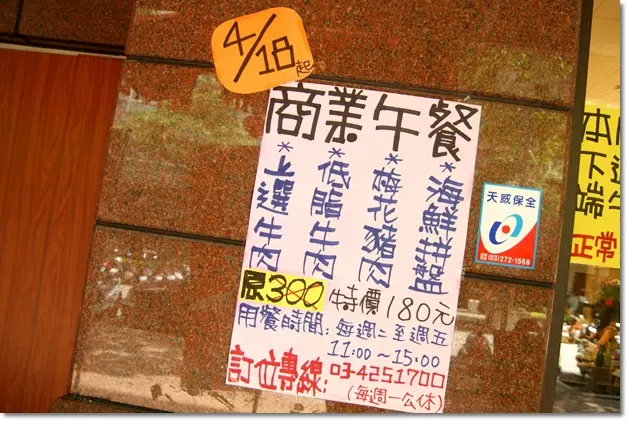 4/18起
商業午餐
*海鮮拼盤
*梅花豬肉
*低脂牛肉
*上選牛肉
原300 特價180元
用餐時間:每週二至週五
11:00~15:00
訂位專線:03-4251700
(每週一公休)
天威保全
(03)272-1568
正常